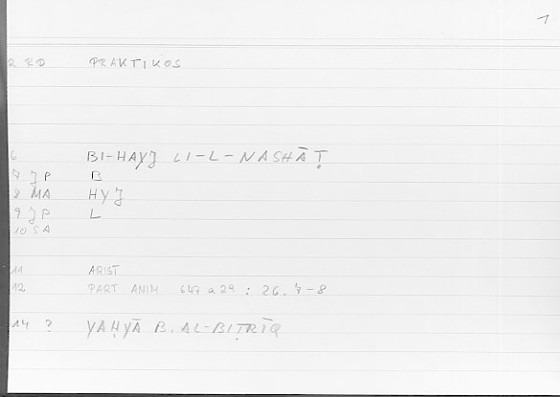 1
2 RD PRAKTIKOS
6 BI-HAYJ LI-L-NASHĀṬ
7 JP B
8 MA HYJ
9 JP L
10 SA
11 ARIST
12 PART ANIM 647 a 29 : 26.7-8
14 ? YAḤYĀ B. AL-BIṬRĪQ